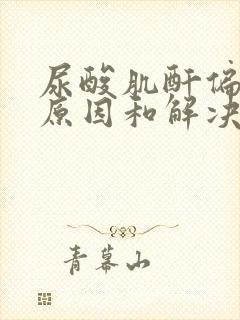 尿酸肌酐偏
原因和解决
青幕山